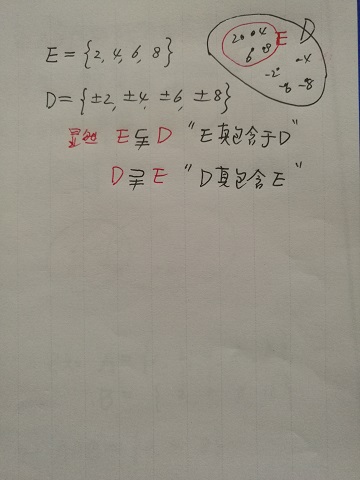 E = {2, 4, 6, 8}
D = {±2, ±4, ±6, ±8}
显然 E ⫋ D "E真包含于D"
D ⫌ E "D真包含E"
E D
2 4
6 8
-4
-2
-6 -8